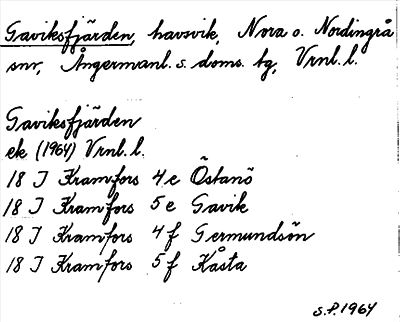 Gaviksfjärden, havsvik, Nora o. Nordingrå
snr, Ångermanl. s. doms. tg, Vrnl. l.
Gaviksfjärden
ek (1964) Vrnl. l.
18 I Kramfors 4e Östanö
18 I Kramfors 5e Gavik
18 I Kramfors 4f Germundsön
18 I Kramfors 5f Kåsta
S.P. 1964